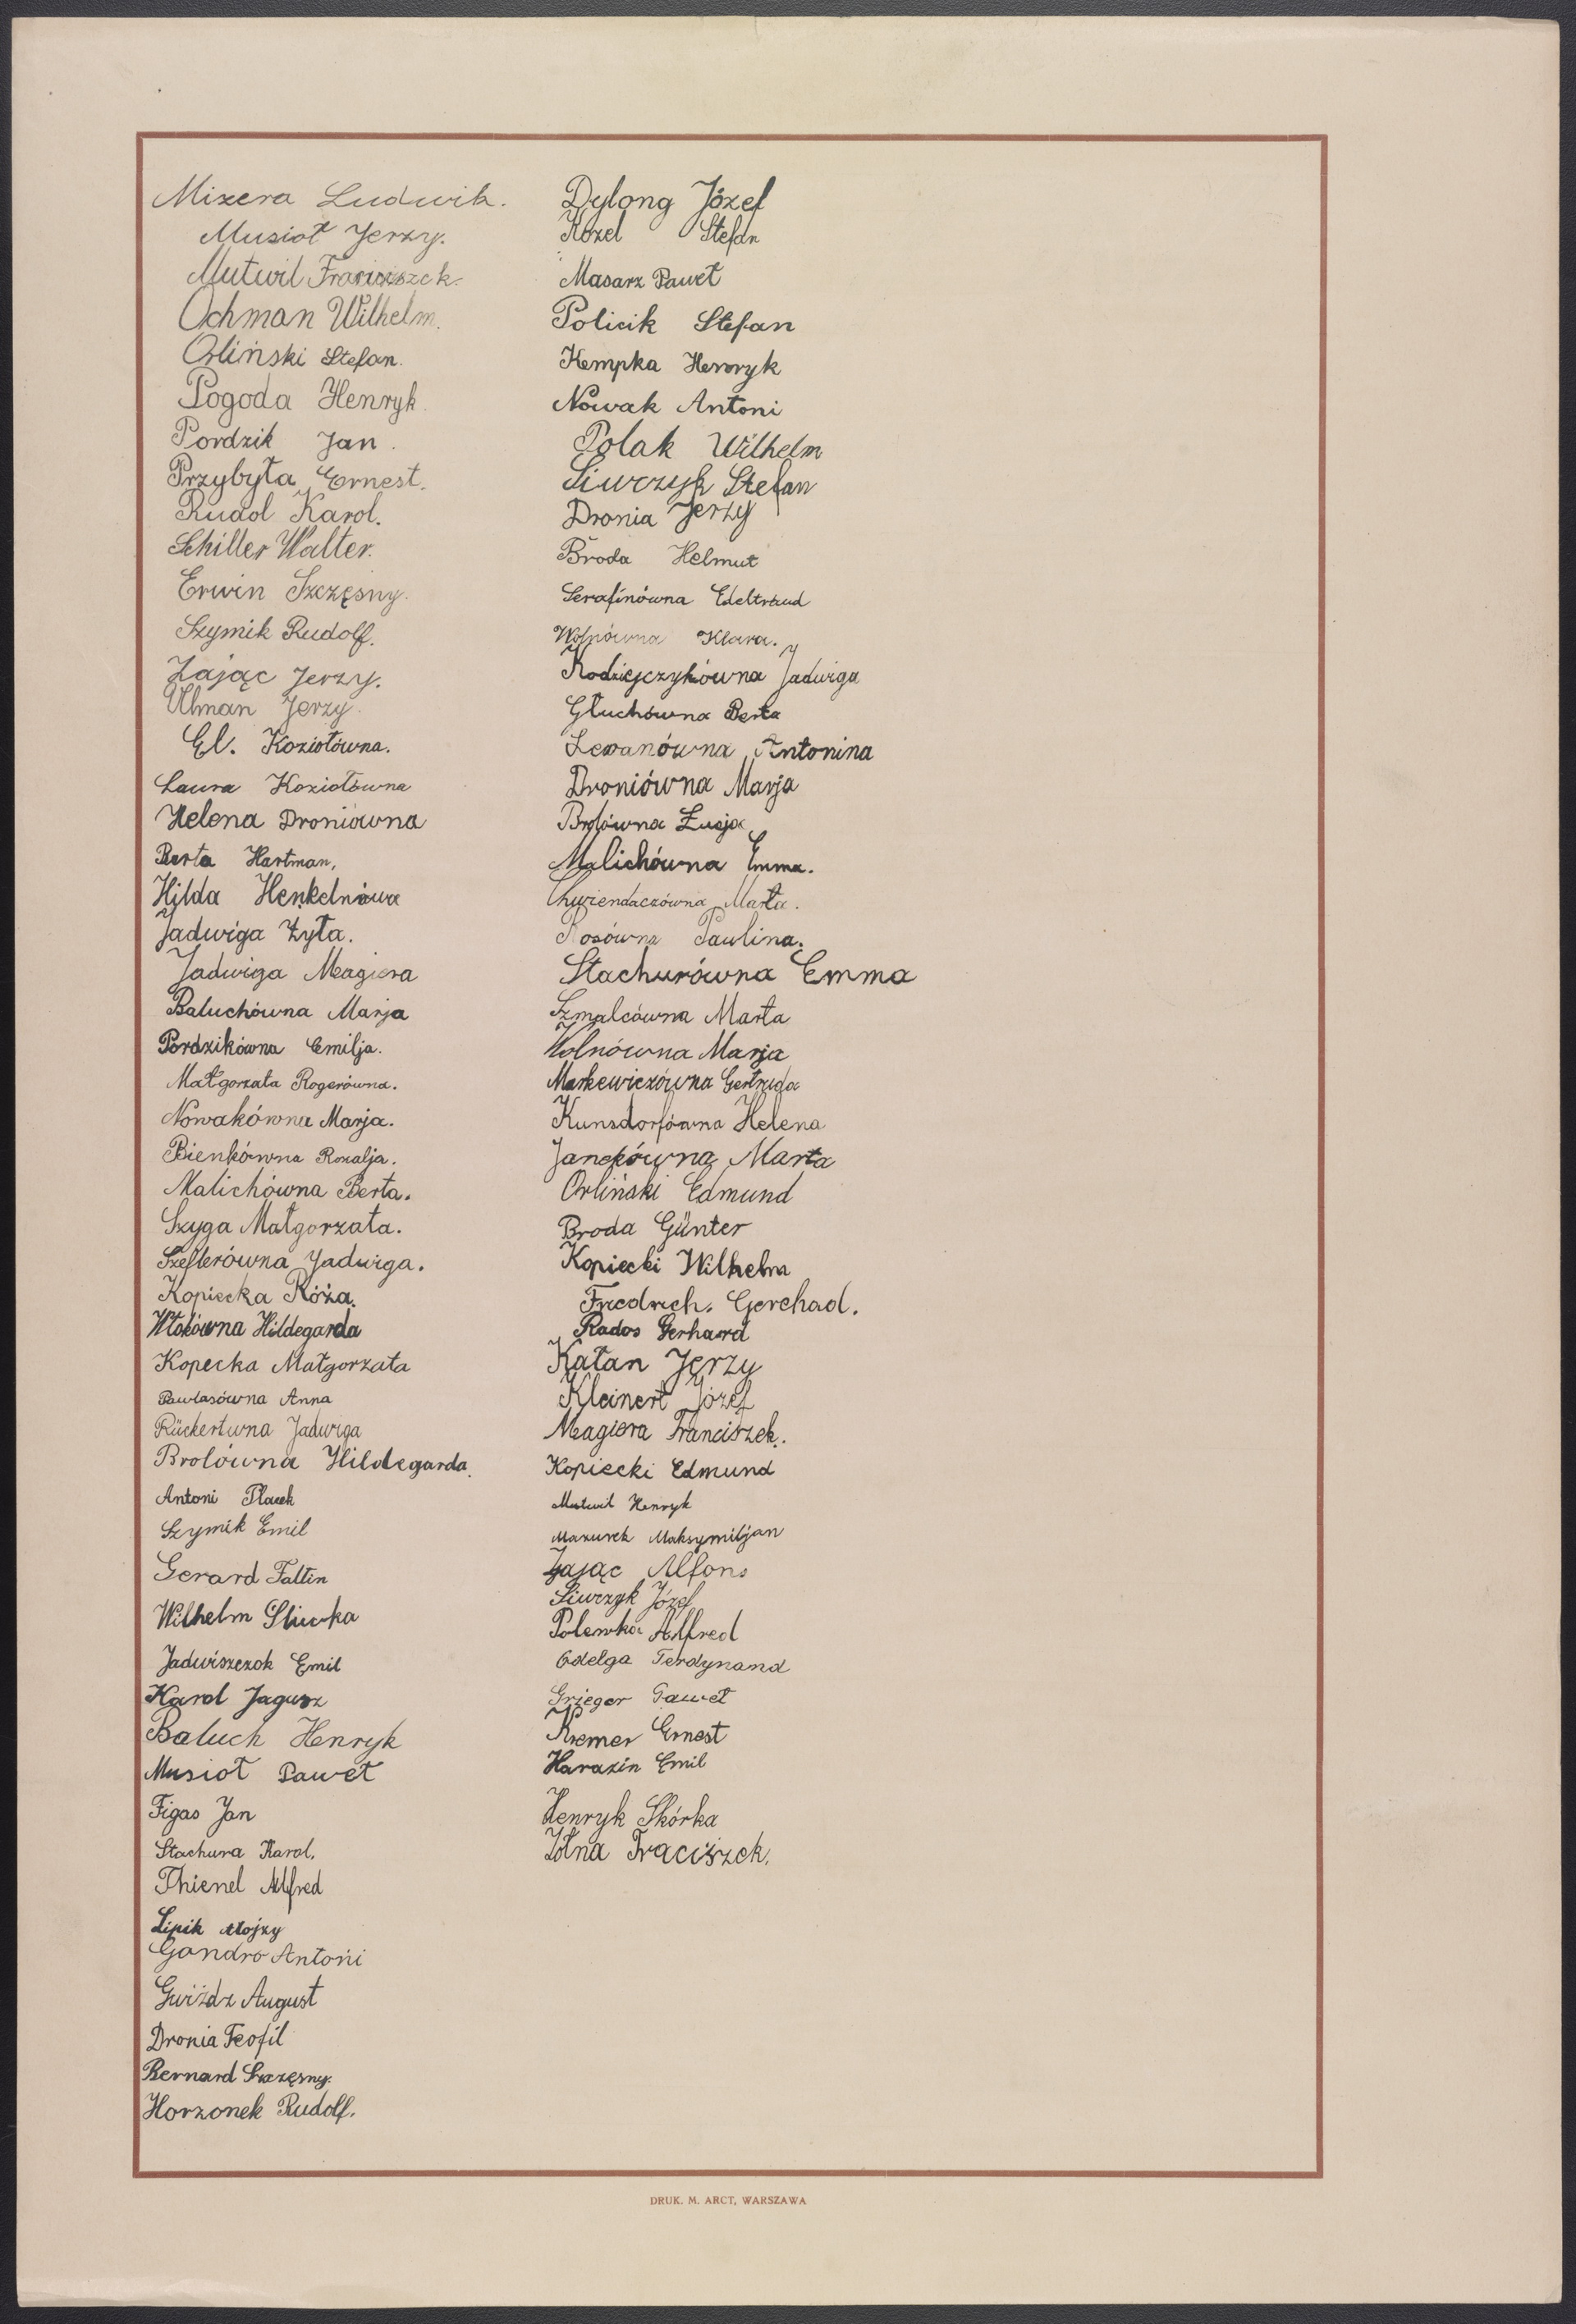 Mizera Ludwik.
Musioł Jerzy.
Mutwil Franciszek.
Ochman Wilhelm.
Orliński Stefan.
Pogoda Henryk.
Pordzik Jan.
Przybyła Ernest.
Rudol Karol.
Schiller Walter.
Erwin Szczęsny.
Szymik Rudolf.
Zając Jerzy.
Ulman Jerzy.
El. Koziołówna.
Laura Koziołówna
Helena Droniówna
Berta Hartman,
Hilda Henkelnówa
Jadwiga Żyła.
Jadwiga Magiera
Baluchówna Marja
Pordzikówna Emilja.
Małgorzata Rogerówna.
Nowakówna Marja.
Bienkówna Rozalja.
Malichówna Berta.
Szyga Małgorzata.
Szeflerówna Jadwiga.
Kopiecka Róża.
Hildegarda
Kopecka Małgorzata
Pawlasówna Anna
Rückertwna Jadwiga
Brolówna Hildegarda.
Antoni Placek
Szymik Emil
Gerard Faltin
Wilhelm Śliwka
Jadwiszczok Emil
Karol Jagusz
Baluch Henryk
Musioł Paweł
Figas Jan
Stachura Karol.
Thienel Alfred
Lipik Alojzy
Gandro Antoni
Gwiżdz August
Dronia Teofil
Bernard Szczęsny.
Horzonek Rudolf.
Dylong Józef
Kozel Stefan
Masarz Paweł
Policik Stefan
Kempka Henryk
Nowak Antoni
Polak Wilhelm
Siwczyk Stefan
Dronia Jerzy
Broda Helmut
Serafinówna Edeltraud
Wolnówna Klara.
Kodziejczykówna Jadwiga
Głuchówna Berta
Antonina
Droniówna Marja
Brolówna Łucja
Malichówna Emma.
Chwiendaczówna Marta.
Rosówna Paulina.
Stachurówna Emma
Szmalcówna Marta
Wolnówna Marja
Markewiczówna Gertruda
Kunsdorfówna Helena
Janekówna Marta
Orliński Edmund
Broda Günter
Kopiecki Wilhelm
Friedrich. Gerchad.
Rados Gerhard
Katan Jerzy
Kleinert Józef
Magiera Franciszek.
Kopiecki Edmund
Mutwil Henryk
Mazurek Maksymiljan
Zając Alfons
Siwczyk Józef
Polewka Alfred
Odelga Ferdynand
Grieger Paweł
Kremer Ernest
Harazin Emil
Henryk Skórka
Żołna Traciszek.
DRUK. M. ARCT, WARSZAWA